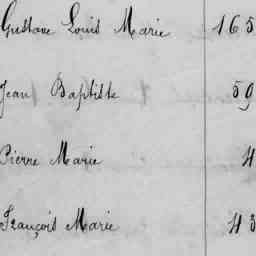 Gustave Louis Marie 165
Jean Baptiste 59
Pierre Marie 4
François Marie 43